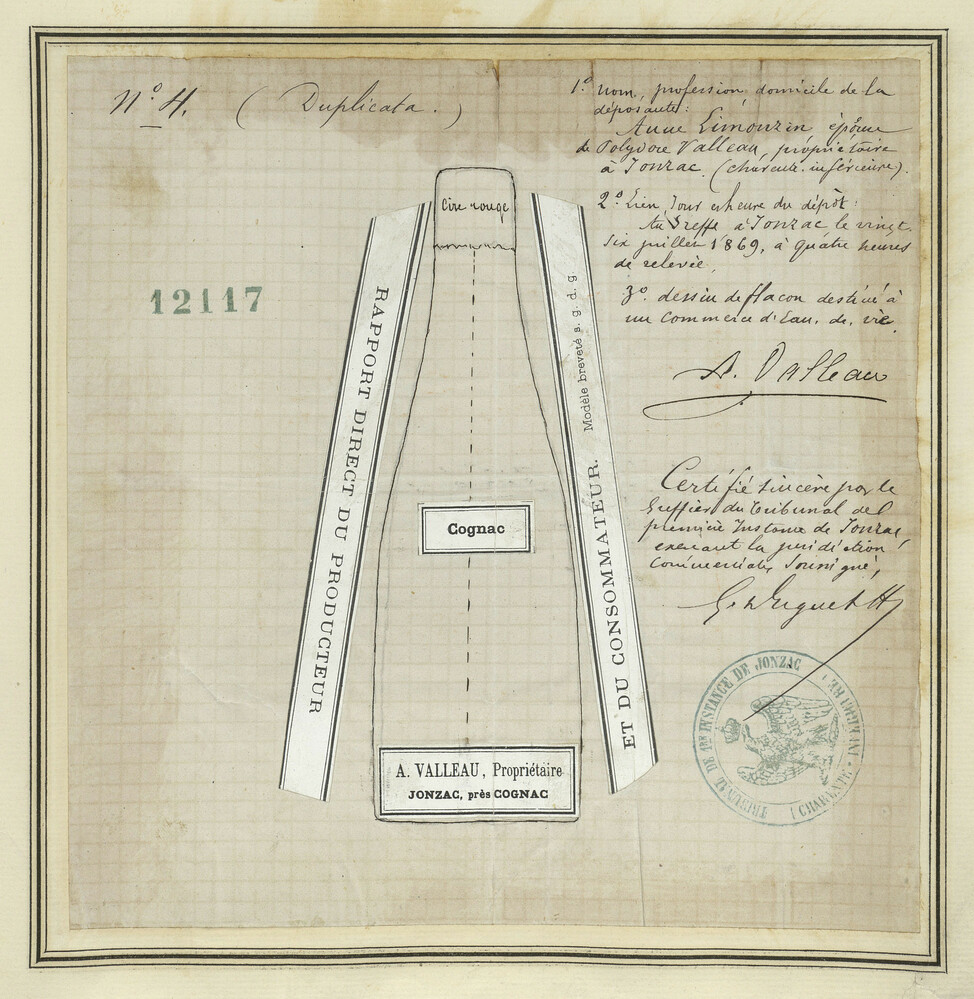 N.º 4. ( Duplicata. )
12117
1.º nom, profession domicile de la
déposante:
Anne Limouzin épouse
de Polydore Valleau, propriétaire
à Jonzac. (charente inférieure).
2.º Lieu, Jour et heure du dépôt:
Au Greffe à Jonzac le vingt
six juillet 1869, à quatre heures
de relevée,
3.º dessin de flacon destiné à
un commerce d'Eau. de. vie.
A. Valleau
Certifié sincère par le
Greffier du tribunal de
première Instance de Jonzac,
exerçant la juridiction
commerciale, soussigné,
Cire rouge
RAPPORT DIRECT DU PRODUCTEUR
ET DU CONSOMMATEUR. Modèle breveté s. g. d. g.
Cognac
A. VALLEAU, Propriétaire
JONZAC, près COGNAC
TRIBUNAL DE 1RE INSTANCE DE JONZAC
(CHARENTE INFÉRIEURE)